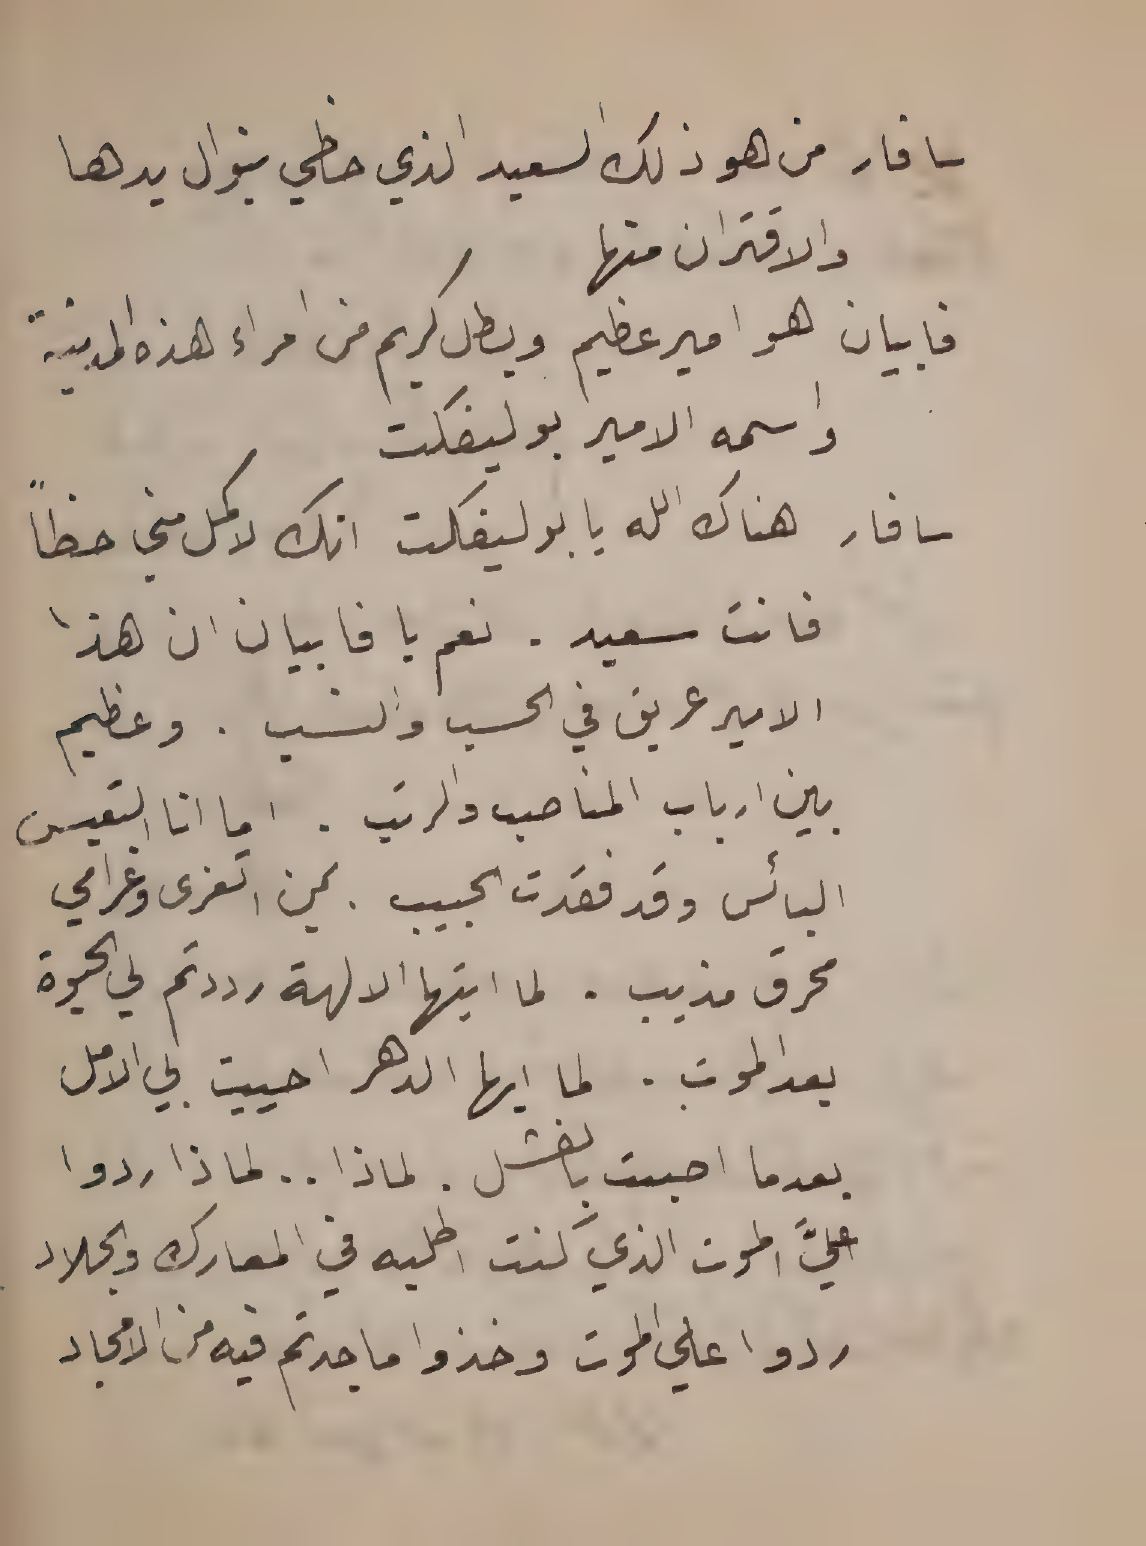 سافار من هو ذلك السعيد الذي حظي بنوال يدها
والاقتران منها
فابيان هو امير عظيم وبطل كريم من امراء هذه المدينة
واسمه الامير بوليفكت
سافار هناك الله يا بوليفكت انك لاكمل مني حظاً
فانت سعيد . نعم يا فابيان ان هذا
الامير عريق في الحسب والنسب . وعظيم
بين ارباب المناصب والرتب . اما انا التعيس
البائس وقد فقدت الحبيب . بمن اتعزى وغرامي
محرق مذيب . لما ايتها الالهة رددتم لي الحيوة
بعد الموت . لما ايها الدهر احييت لي الامل
بعدما احببت بالفشل . لماذا .. لماذا ردوا
عليَّ الموت الذي كنت اطلبه في المعارك والجلاد
ردوا علي الموت وخذوا ما جدتم فيه من الامجاد